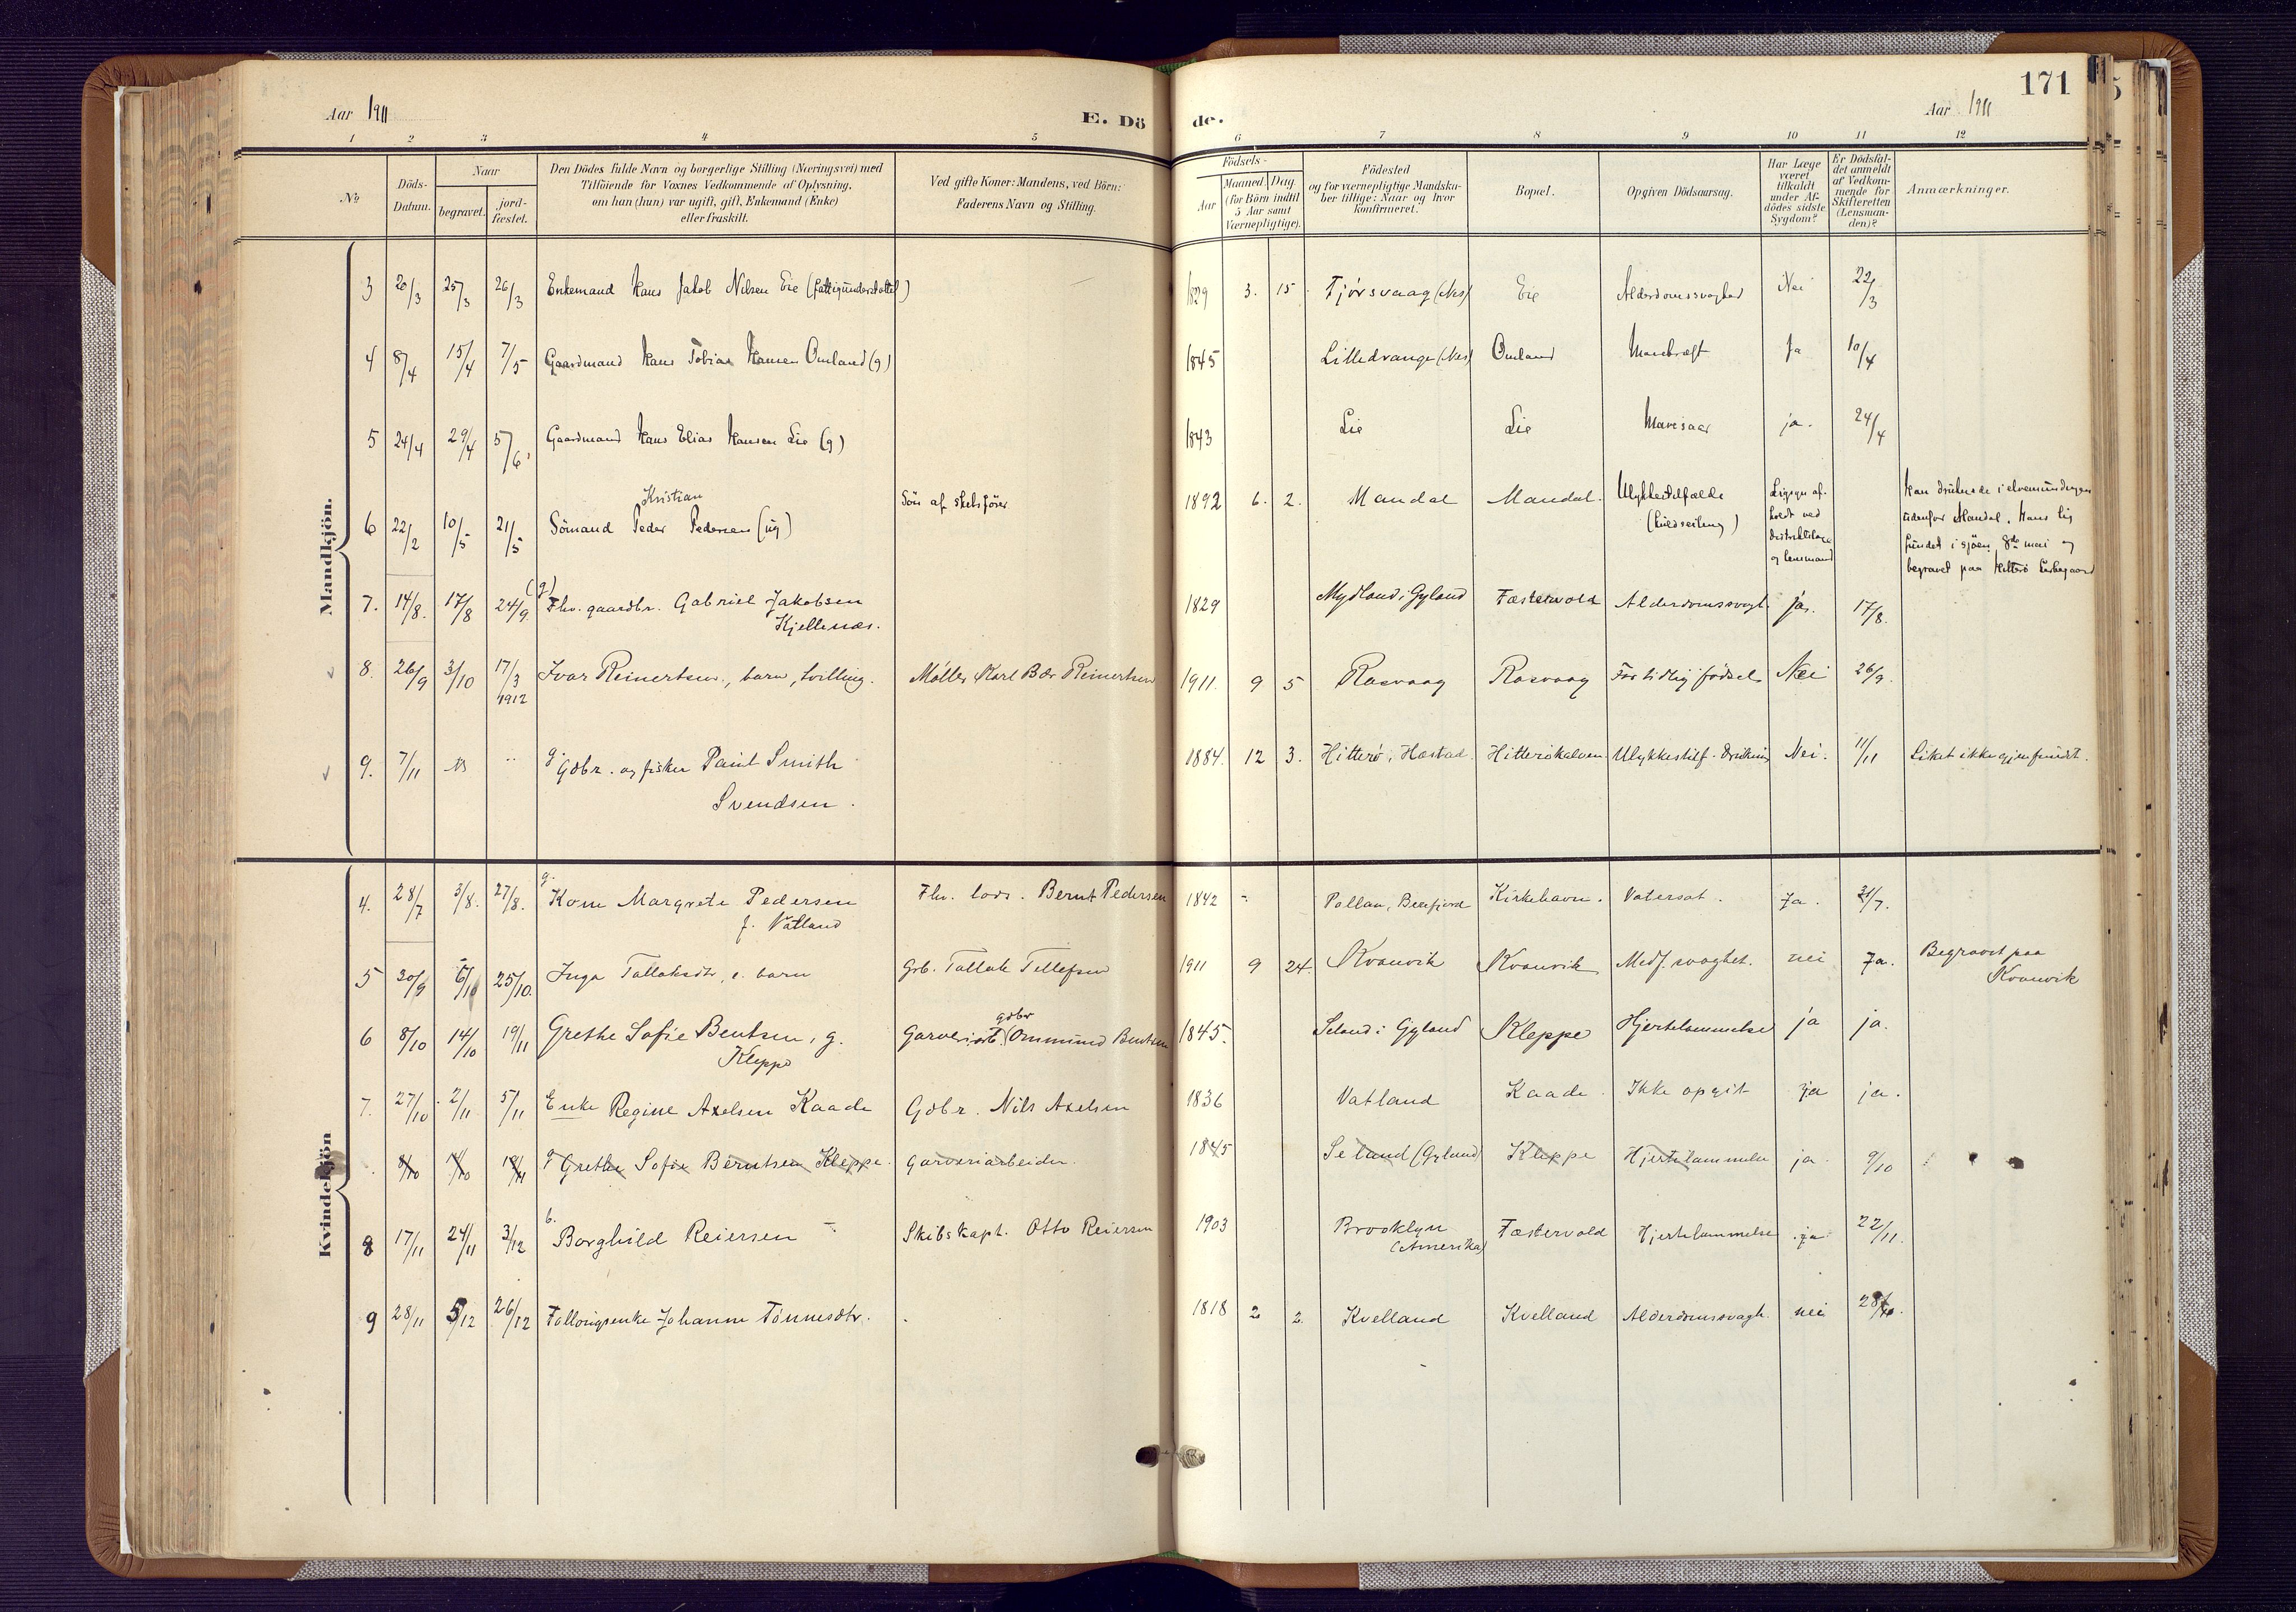 171
Aar 1911
E. Dö de.
Aar 1911
1 2 3 4 5 6 7 8 9 10 11 12
No
Döds-Datum.
Naar
begravet.
jord-fæstet.
Den Dödes fulde Navn og borgerlige Stilling (Næringsvei) med
Tilföiende for Voxnes Vedkommende af Oplysning,
om han (hun) var ugift, gift, Enkemand (Enke)
eller fraskilt.
Ved gifte Koner: Mandens, ved Börn:
Faderens Navn og Stilling.
Födsels-
Aar
Maaned. Dag.
(for Börn indtil
5 Aar samt
Værnepligtige).
Födested
og for værnepligtige Mandska-
ber tillige: Naar og hvor
konfirmeret.
Bopæl.
Opgiven Dödsaarsag.
Har Læge
været
tilkaldt
under Af-
dödes sidste
Sygdom?
Er Dödsfal-
det anmeldt
af Vedkom-
mende for
Skifteretten
(Lensman-
den)?
Anmærkninger.
Mandkjön.
3 20/3 25/3 26/3 Enkemand Hans Jakob Nilsen Eie (fattigunderstöttet) 1829 3. 15 Tjörsvaag (Nes) Eie Alderdomssvaghed Nei 22/3
4 8/4 15/4 7/5 Gaardmand Hans Tobias Hansen Omland (g) 1845 Lilledrange (Nes) Omland Mavekræft Ja 10/4
5 24/4 29/4 5/6 Gaardmand Hans Elias Hansen Lie (g) 1843 Lie Lie Mavesaar ja. 24/4
Kristian
6 22/2 10/5 21/5 Sömand Peder Pedersen (ug) Sön af 1892 6. 2. Mandal Mandal. Ulykkestilfælde
(kuldseiling)
Ligsyn af-
holdt ved
distriktslæge
og lensmand
Han druknede i elvemundingen
udenfor Mandal. Hans lig
fundet i sjöen 8de mai og
begravet paa Hitterö kirkegaard
7. 14/8. 17/8 24/9. (g) Fhv. gaardbr. Gabriel Jakobsen
Kjellenæs.
1829 Mydland i Gyland Fæstervold Alderdomssvagh. ja. 17/8.
8. 26/9 3/10 17/3 1912 Ivar Reinertsen, barn, tvilling. Möller Karl Bær Reinertsen 1911. 9 5 Rasvaag Rasvaag For tidlig födsel Nei 26/9.
9. 7/11 " g Gdbr. og fisker Paul Smith
Svendsen.
1884. 12 3. Hitterö, Hæstad Hitterökalven Ulykkestilf. Drukning Nei. 11/11 Liket ikke gjenfundet.
Kvindekjön
4. 28/7 3/8. 27/8. g. Kone Margrete Pedersen
f. Vatland
Fhv. lods. Bernt Pedersen 1842 - Kirkehavn. Vatersot. Ja. 31/7.
5 30/9 6/10 25/10. Inga Tallaksdtr, e. barn Grb. Tallak Tellefsen 1911 9 24. Kvanvik Kvanvik Medf. svaghet. nei Ja. Begravet paa
Kvanvik
6 8/10 14/10 19/11 Grethe Sofie Bentsen, g.
Kleppe
gdbr
Garveriarb. Ommund Bentsen 1845. Seland i Gyland Kleppe Hjertelammelse ja ja.
7. 27/10. 2/11 5/11 Enke Regine Axelsen Kaade Gdbr. Nils Axelsen 1836 Vatland Kaade. Ikke opgit ja ja.
8/10 14/10 19/11 g Grethe Sofie Berntsen Kleppe. Garveriarbeider. 1845 Seland (Gyland) Kleppe Hjertelammelse ja. 9/10
8 17/11 24/11 3/12 b. Borghild Reiersen Skibskapt. Otto Reiersen 1903 Brooklyn
(Amerika)
Fæstervold Hjertelammelse ja 22/11.
9 28/11 5/12 26/12 Johanne Tönnesdtr. 1818 2 2. Kvelland Kvelland Alderdomssvagh. nei